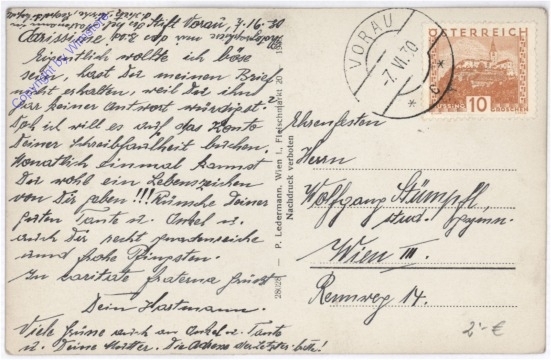 Stift Vorau, 7.VI.30
Carissime
Eigentlich wollte ich böse
sein, hast Du meinen Brief
nicht erhalten, weil Du ihn
gar keiner Antwort würdigst?
Doch ich will es auf das Konto
Deiner Schreibfaulheit buchen.
Monatlich einmal kannst
Du wohl ein Lebenszeichen
von Dir geben!!! Wünsche Deiner
Tante u. Onkel u.
auch Dir recht gnadenreiche
und frohe Pfingsten.
In caritate fraterna grüsst
Dein Hartmann.
Viele Grüsse auch an Onkel u. Tante
u. Deine Mutter. Die Adresse der letzter bitte!
Copyright by
28028 — P. Ledermann, Wien I., Fleischmarkt 20
Nachdruck verboten
VORAU
-7.VI.30
ÖSTERREICH
10
GROSCHEN
Ehrenfesten
Herrn
Wolfgang Stümpfl,
stud. gymn.
Wien III.
Rennweg 14.
2'-€